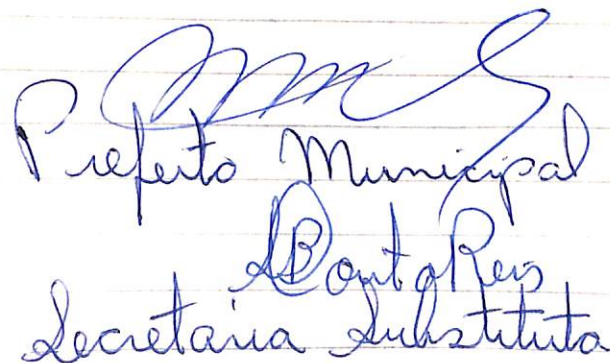 Prefeito Municipal
Reis
Secretaria Substituta